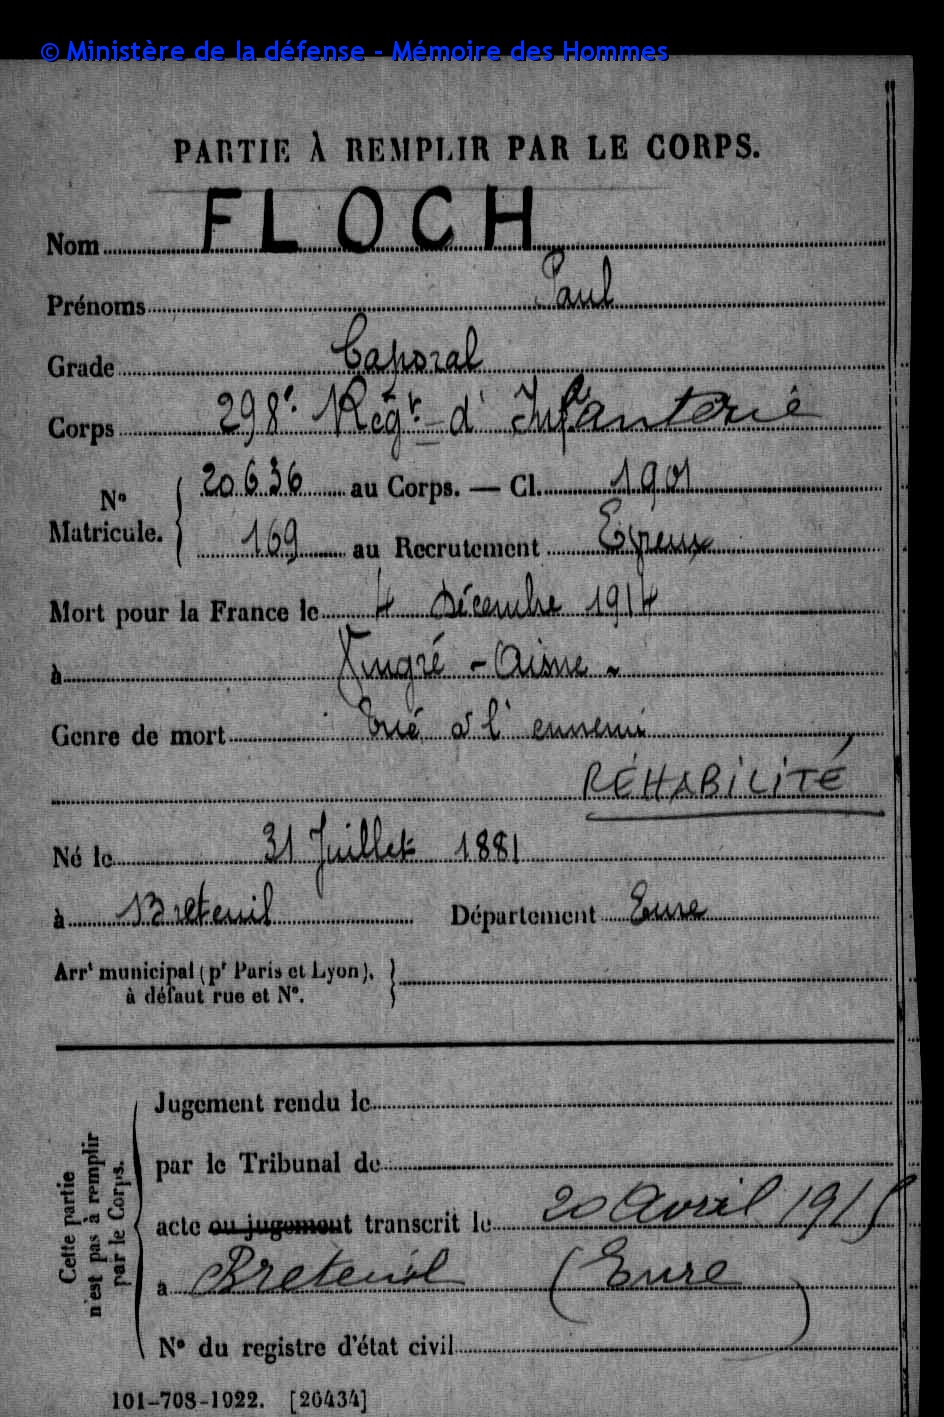 © Ministère de la défense - Mémoire des Hommes
PARTIE À REMPLIR PAR LE CORPS.
Nom FLOCH
Prénoms Paul
Grade Caporal
Corps 298e Régt d'Infanterie
N° Matricule. { 20636 au Corps. — Cl. 1901
169 au Recrutement Evreux
Mort pour la France le 4 Décembre 1914
à Vingré - Aisne -
Genre de mort Tué à l'ennemi
RÉHABILITÉ
Né le 31 Juillet 1881
à Breteuil Département Eure
Arrt municipal (pr Paris et Lyon), }
à défaut rue et N°.
Cette partie
n'est pas à remplir
par le Corps.
Jugement rendu le
par le Tribunal de
acte ou jugement transcrit le 20 Avril 1915
à Breteuil (Eure)
N° du registre d'état civil
101-708-1922. [26434]